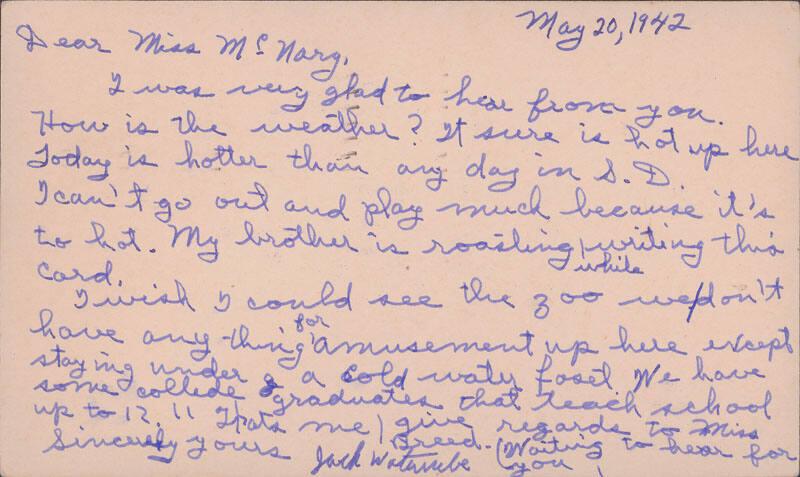 May 20, 1942
Dear Miss McNary,
I was very glad to hear from you.
How is the weather? It sure is hot up here
Today is hotter than any day in S.D.
I can't go out and play much because it's
to hot. My brother is roasting while writing this
card.
I wish I could see the zoo we don't
have any-thing for amusement up here except
staying under a cold water faset. We have
some college graduates that teach school
up to 12.!! Thats me, give regards to Miss
Sincerely yours Breed. (Waiting to hear for
Jack you